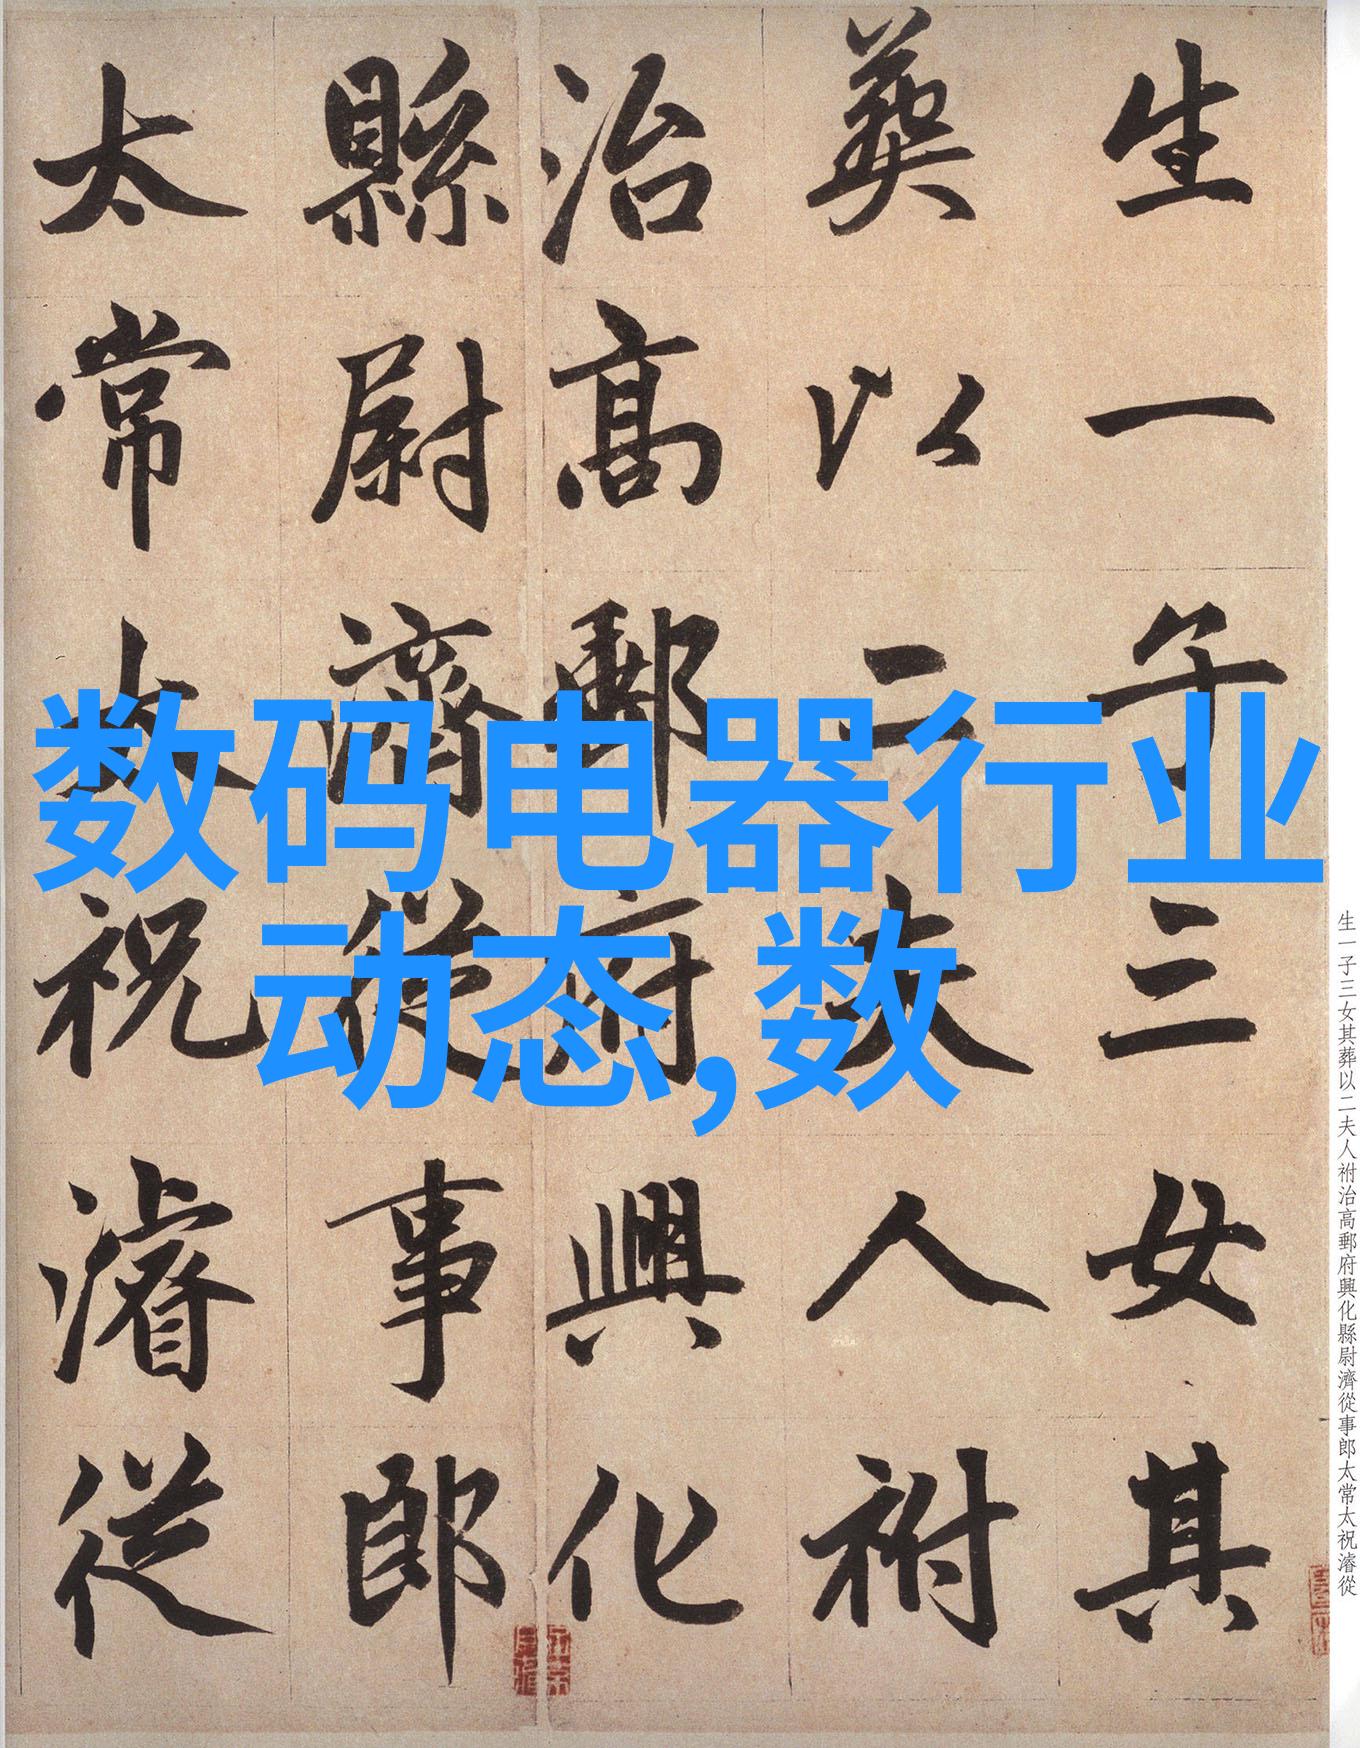 数码电器行业
动态,数
生一子三女其
葬以二夫人祔
治高郵府興化
縣尉濟從事郎
太常太祝濬從
生一子三女其葬以二夫人祔治高郵府興化縣尉濟從事郎太常太祝濬從